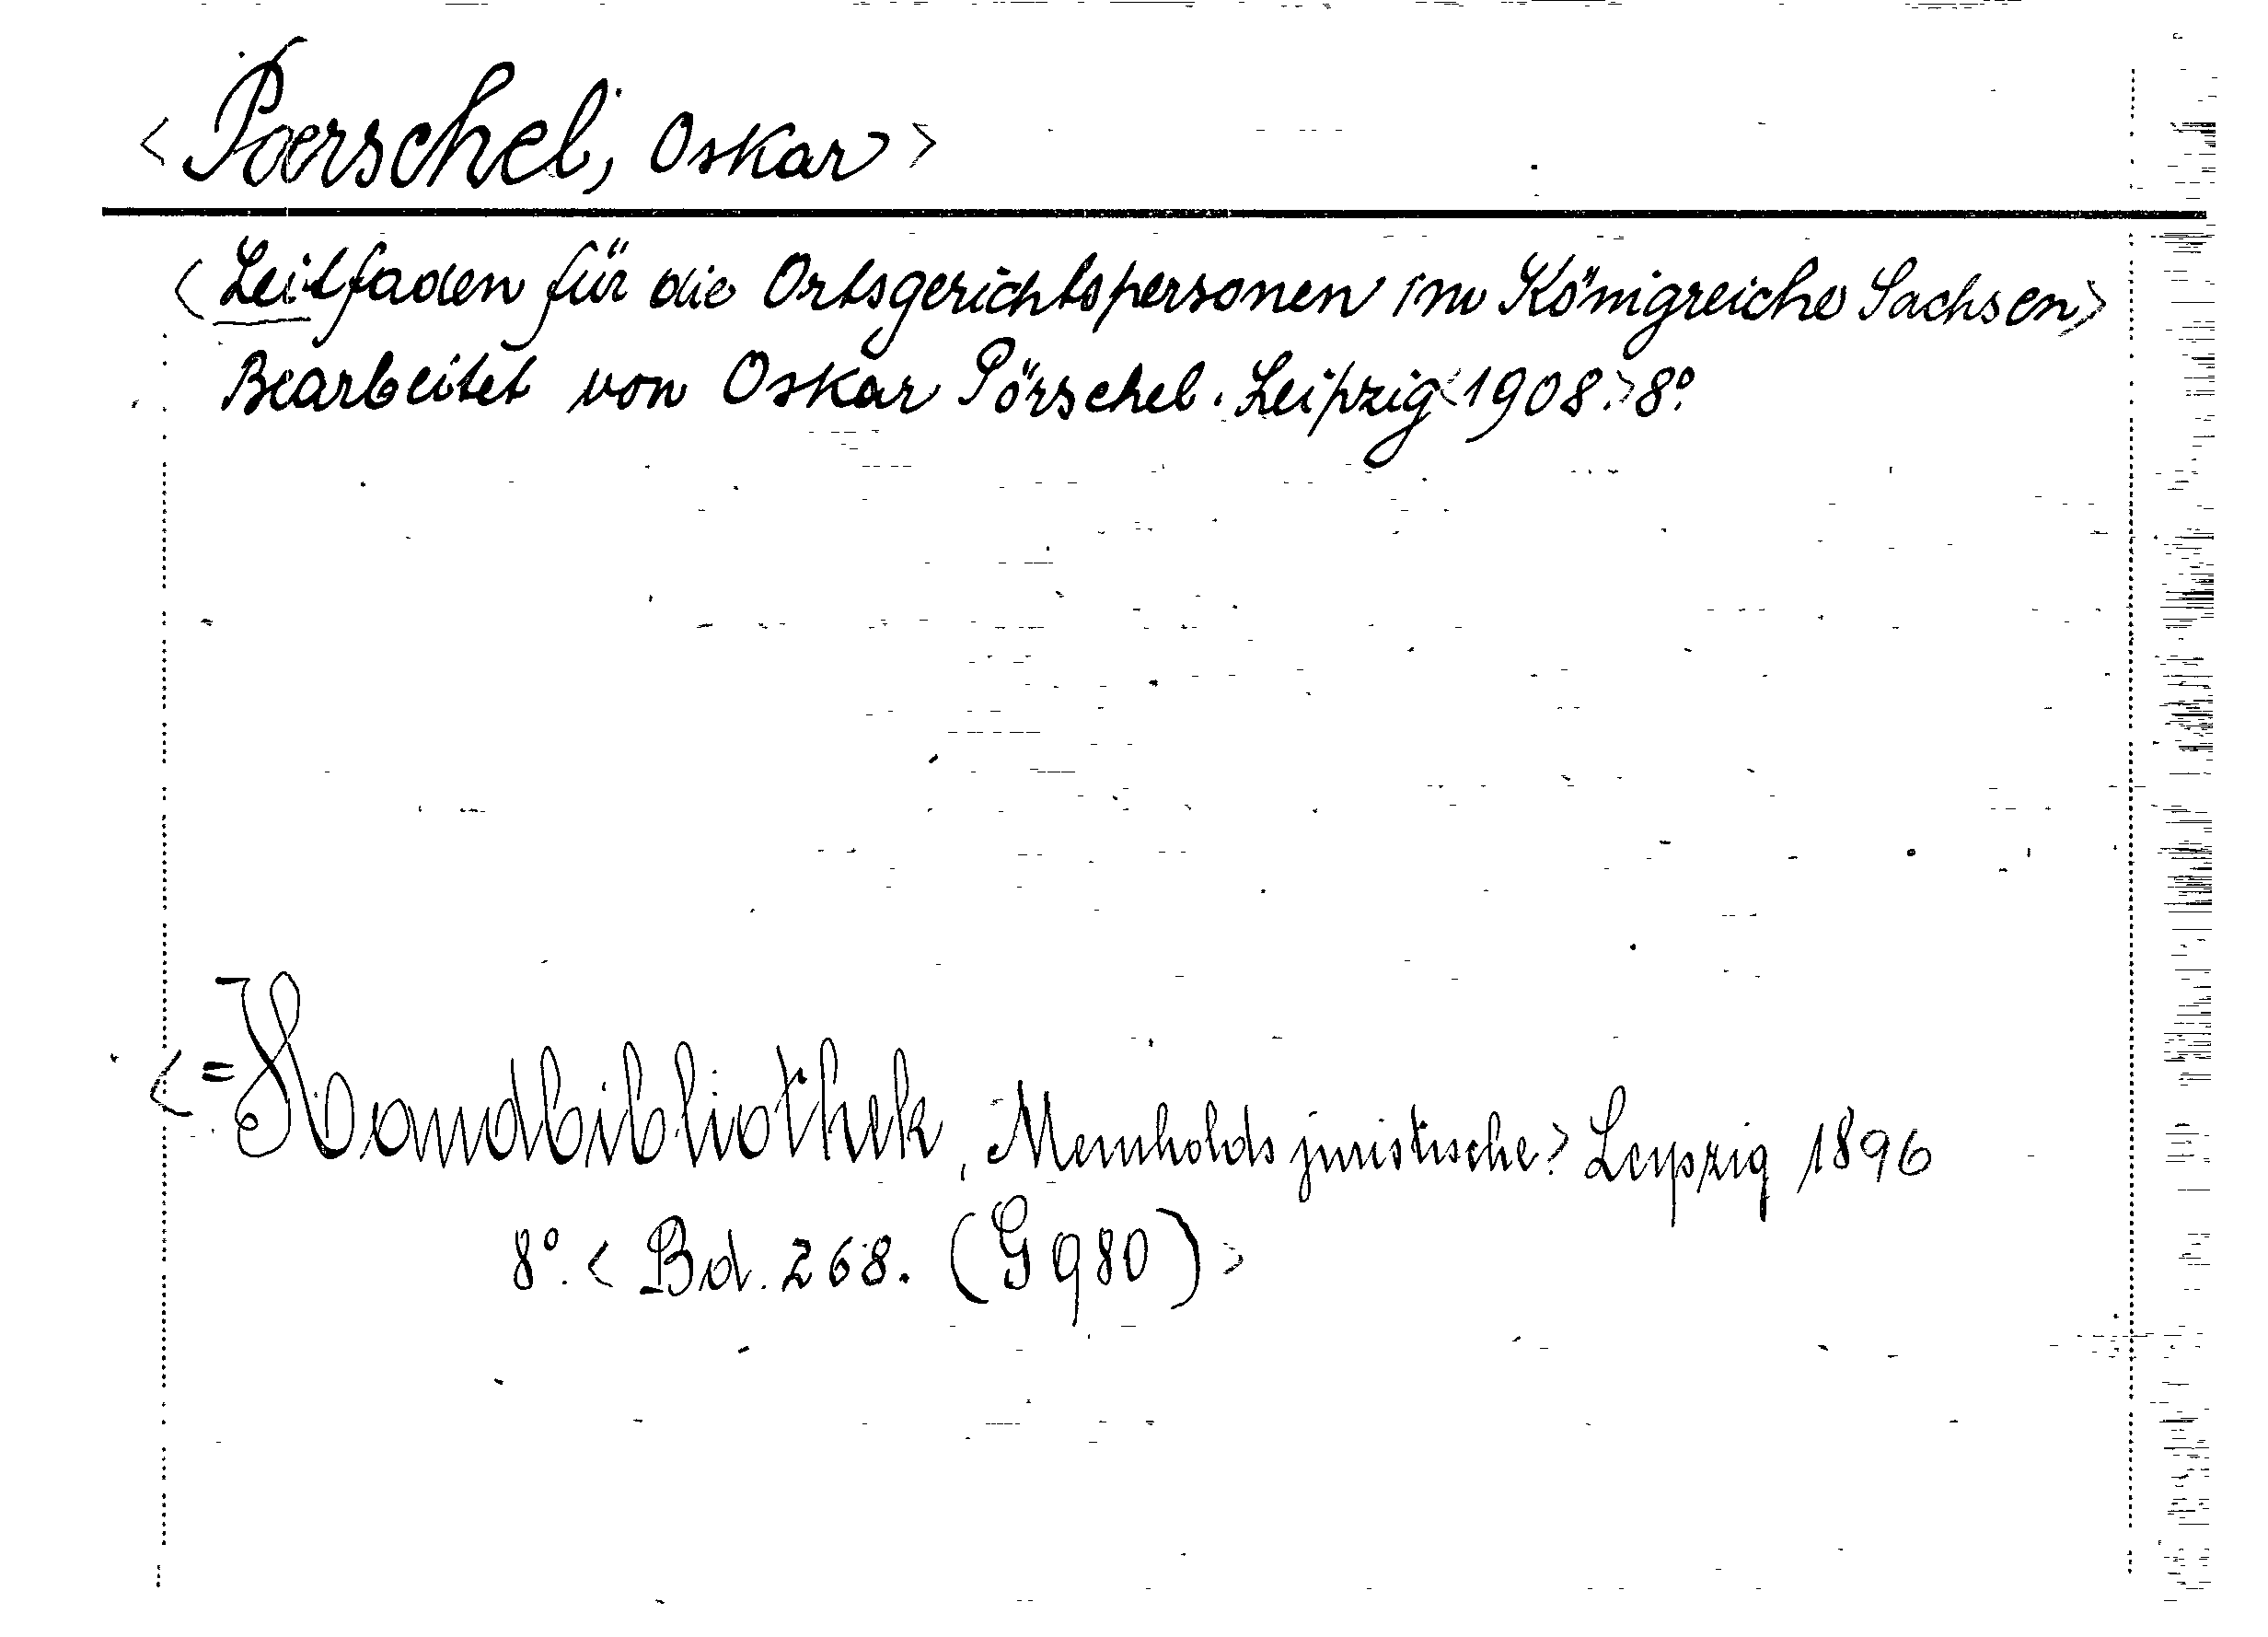 < Poerschel, Oskar >
< Leitfaden für die Ortsgerichtspersonen im Königreiche Sachsen >
Bearbeitet von Oskar Pörschel. Leipzig < 1908. > 8°.
< = Handbibliothek, Meinholds juristische. > Leipzig 1896
8°. < Bd. 268. (G 980) >